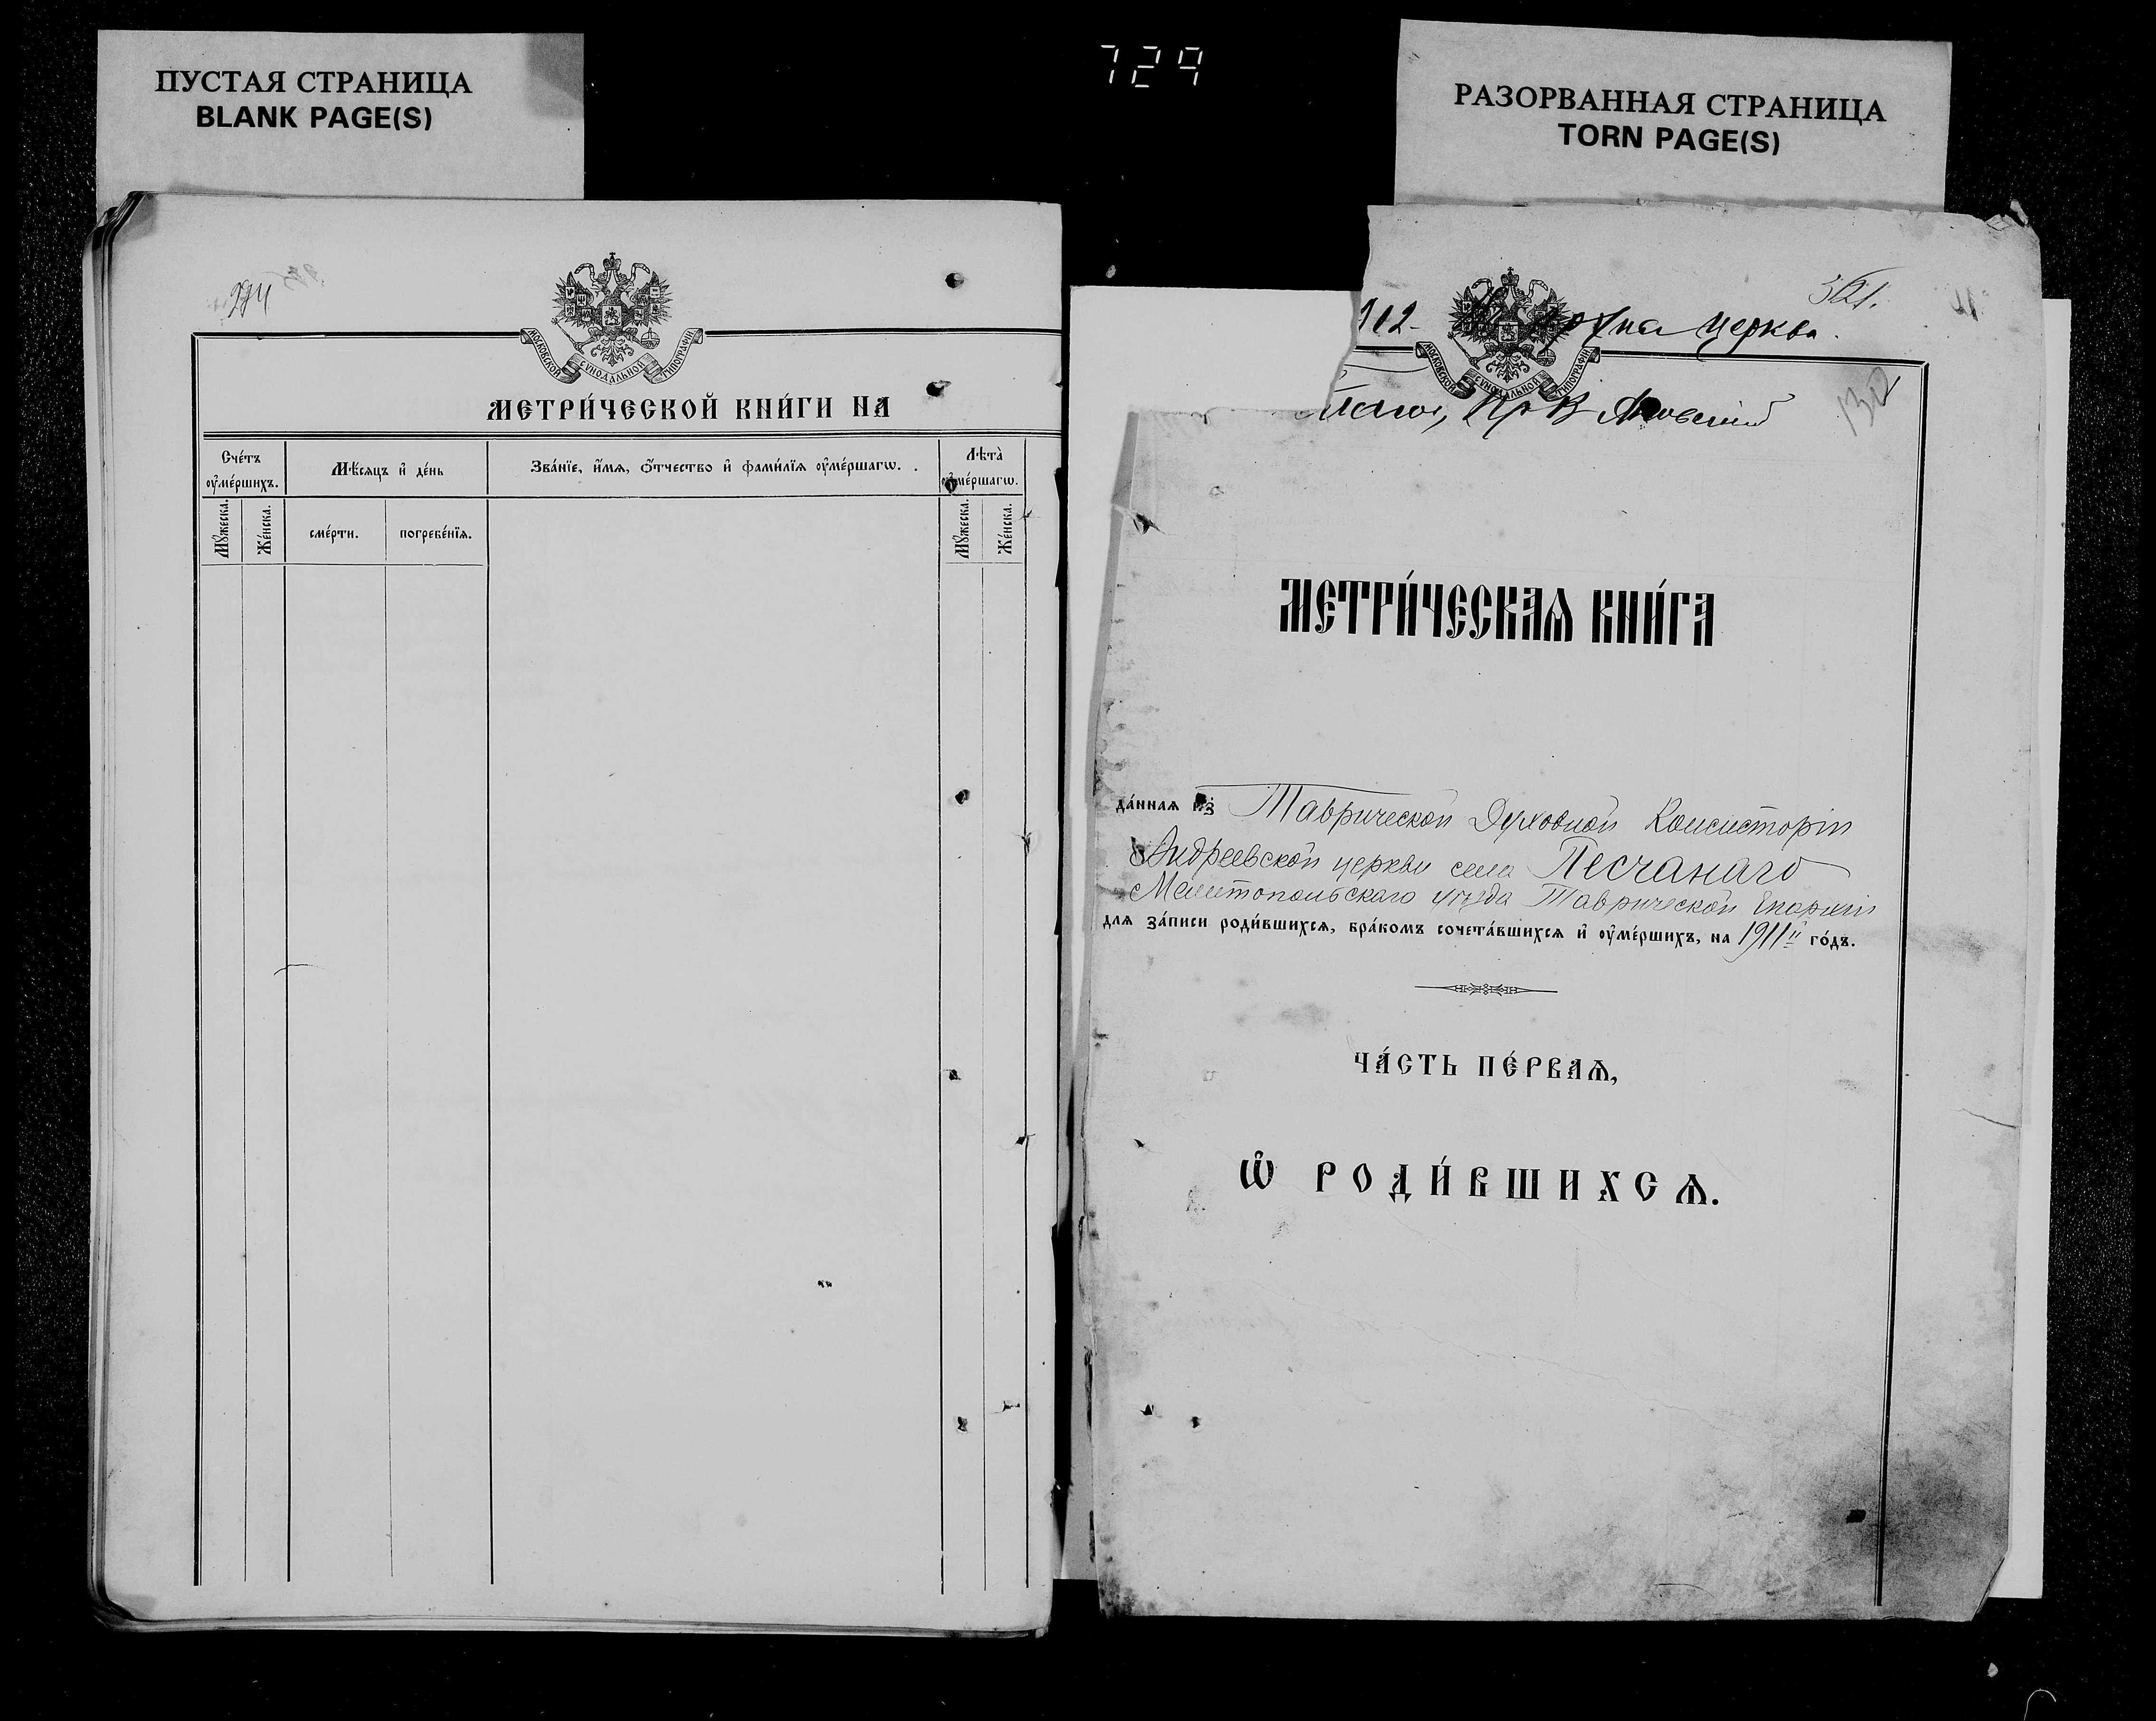 ПУСТАЯ СТРАНИЦА
BLANK PAGE(S)
729
РАЗОРВАННАЯ СТРАНИЦА
TORN PAGE(S)
274
МОСКОВСКОЙ СѴНОДАЛЬНОЙ ТИПОГРАФІИ
МЕТРИ́ЧЕСКОЙ КНИ́ГИ НА
Сче́тъ оу҆ме́ршихъ.
Мѣ́сяцъ и҆ де́нь
Зва́нїе, и҆́мѧ, ѻ҆́тчество и҆ фами́лїѧ оу҆ме́ршагѡ.
Лѣ́та оу҆ме́ршагѡ.
Мꙋ́жеска.
Же́нска.
сме́рти.
погребе́нїѧ.
Мꙋ́жеска.
Же́нска.
321.
912-
церкви.
МОСКОВСКОЙ СѴНОДАЛЬНОЙ ТИПОГРАФІИ
130
МЕТРИ́ЧЕСКАѦ КНИ́ГА
да́ннаѧ из Таврической Духовной Консисторіи
Андреевской церкви села Песчанаго
Мелитопольскаго уѣзда Таврической Епархіи
для за́писи роди́вшихсѧ, бра́комъ сочета́вшихсѧ и҆ оу҆ме́ршихъ, на 1911й го́дъ.
ЧА́СТЬ ПЕ́РВАѦ,
Ѡ҆ РОДИ́ВШИХСѦ.